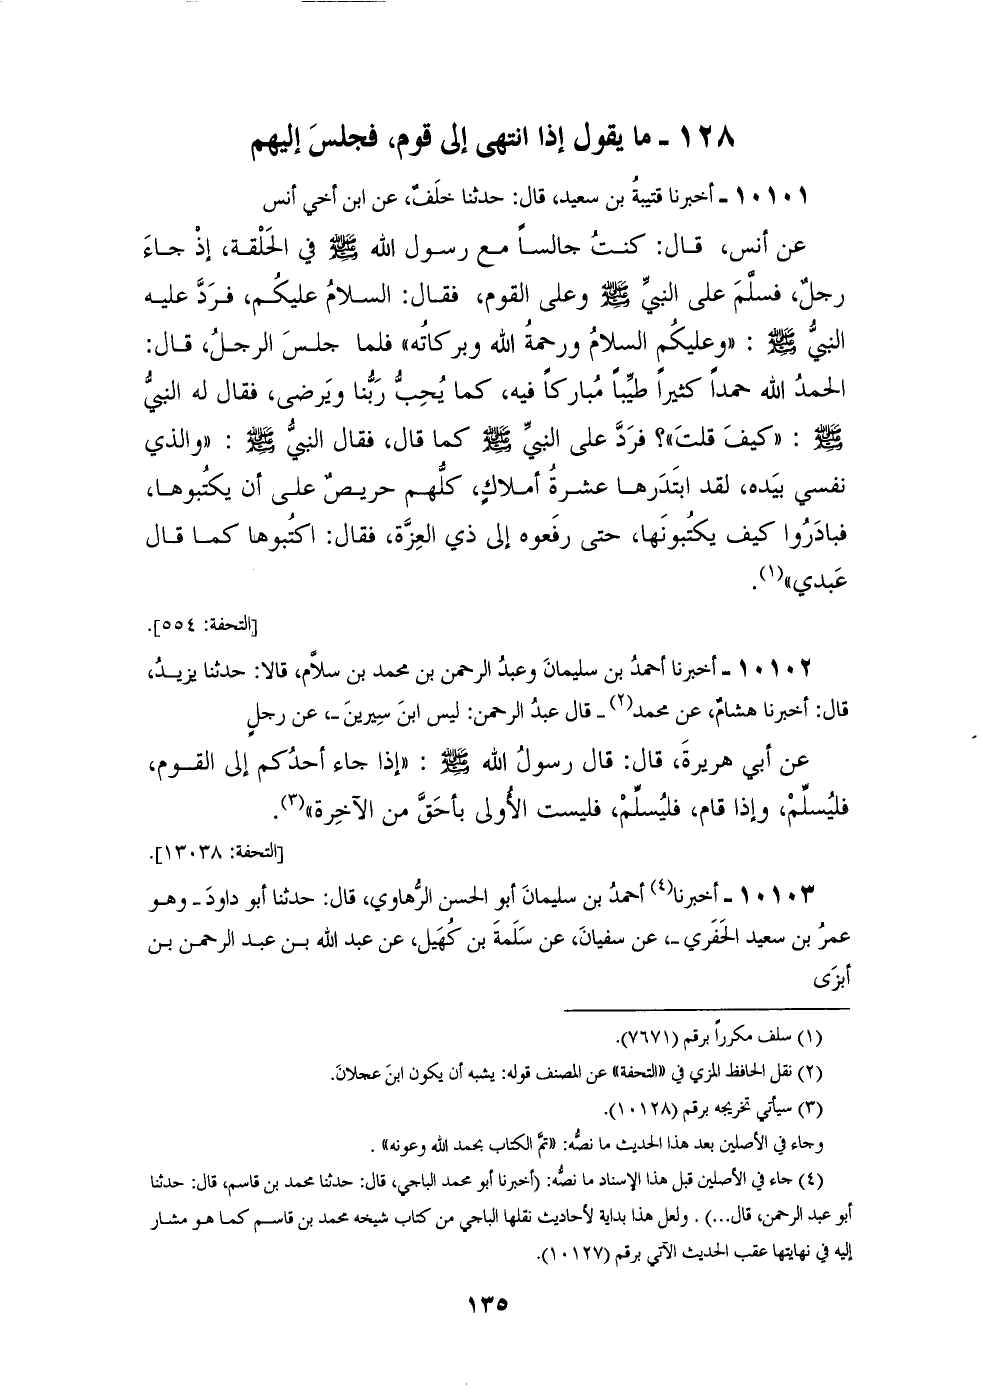 ١٢٨ ـ ما يقول إذا انتهى إلى قوم، فجلسَ إليهم
١٠١٠١ ـ أخبرنا قتيبةُ بن سعيد، قال: حدثنا خلَفٌ، عن ابن أخي أنس
عن أنس، قال: كنتُ جالساً مع رسول الله ﷺ في الحَلْقة، إذْ جاءَ
رجلٌ، فسلَّمَ على النبيِّ ﷺ وعلى القوم، فقال: السلامُ عليكُم، فرَدَّ عليه
النبيُّ ﷺ : «وعليكُم السلامُ ورحمةُ الله وبركاتُه» فلما جلسَ الرجلُ، قال:
الحمدُ الله حمداً كثيراً طيِّباً مُباركاً فيه، كما يُحِبُّ رَبُّنا ويَرضى، فقال له النبيُّ
ﷺ : «كيفَ قلتَ»؟ فرَدَّ على النبيِّ ﷺ كما قال، فقال النبيُّ ﷺ : «والذي
نفسي بيَده، لقد ابتَدَرها عشرةُ أملاكٍ، كلُّهم حريصٌ على أن يكتُبوها،
فبادَرُوا كيف يكتُبونَها، حتى رفَعوه إلى ذي العِزَّة، فقال: اكتُبوها كما قال
عَبدي»(١).
[التحفة: ٥٥٤].
١٠١٠٢ ـ أخبرنا أحمدُ بن سليمانَ وعبدُ الرحمن بن محمد بن سلاَّم، قالا: حدثنا يزيدُ،
قال: أخبرنا هشامٌ، عن محمد(٢) ـ قال عبدُ الرحمن: ليس ابنَ سِيرينَ ـ، عن رجلٍ
عن أبي هريرةَ، قال: قال رسولُ الله ﷺ : «إذا جاء أحدُكم إلى القوم،
فليُسلِّمْ، وإذا قام، فليُسلِّمْ، فليست الأُولى بأحَقَّ من الآخِرة»(٣).
[التحفة: ١٣٠٣٨].
١٠١٠٣ ـ أخبرنا(٤) أحمدُ بن سليمانَ أبو الحسن الرُّهاوي، قال: حدثنا أبو داودَ ـ وهو
عمرُ بن سعيد الحَفَري ـ، عن سفيانَ، عن سَلَمةَ بن كُهَيل، عن عبد الله بن عبد الرحمن بن
أبزَى
(١) سلف مكرراً برقم (٧٦٧١).
(٢) نقل الحافظ المزي في «التحفة» عن المصنف قوله: يشبه أن يكون ابنَ عجلانَ.
(٣) سيأتي تخريجه برقم (١٠١٢٨).
وجاء في الأصلين بعد هذا الحديث ما نصُّه: «تمَّ الكتاب بحمد الله وعونه» .
(٤) جاء في الأصلين قبل هذا الإسناد ما نصُّه: (أخبرنا أبو محمد الباجي، قال: حدثنا محمد بن قاسم، قال: حدثنا
أبو عبد الرحمن، قال...) . ولعل هذا بداية لأحاديث نقلها الباجي من كتاب شيخه محمد بن قاسم كما هو مشار
إليه في نهايتها عقب الحديث الآتي برقم (١٠١٢٧).
١٣٥